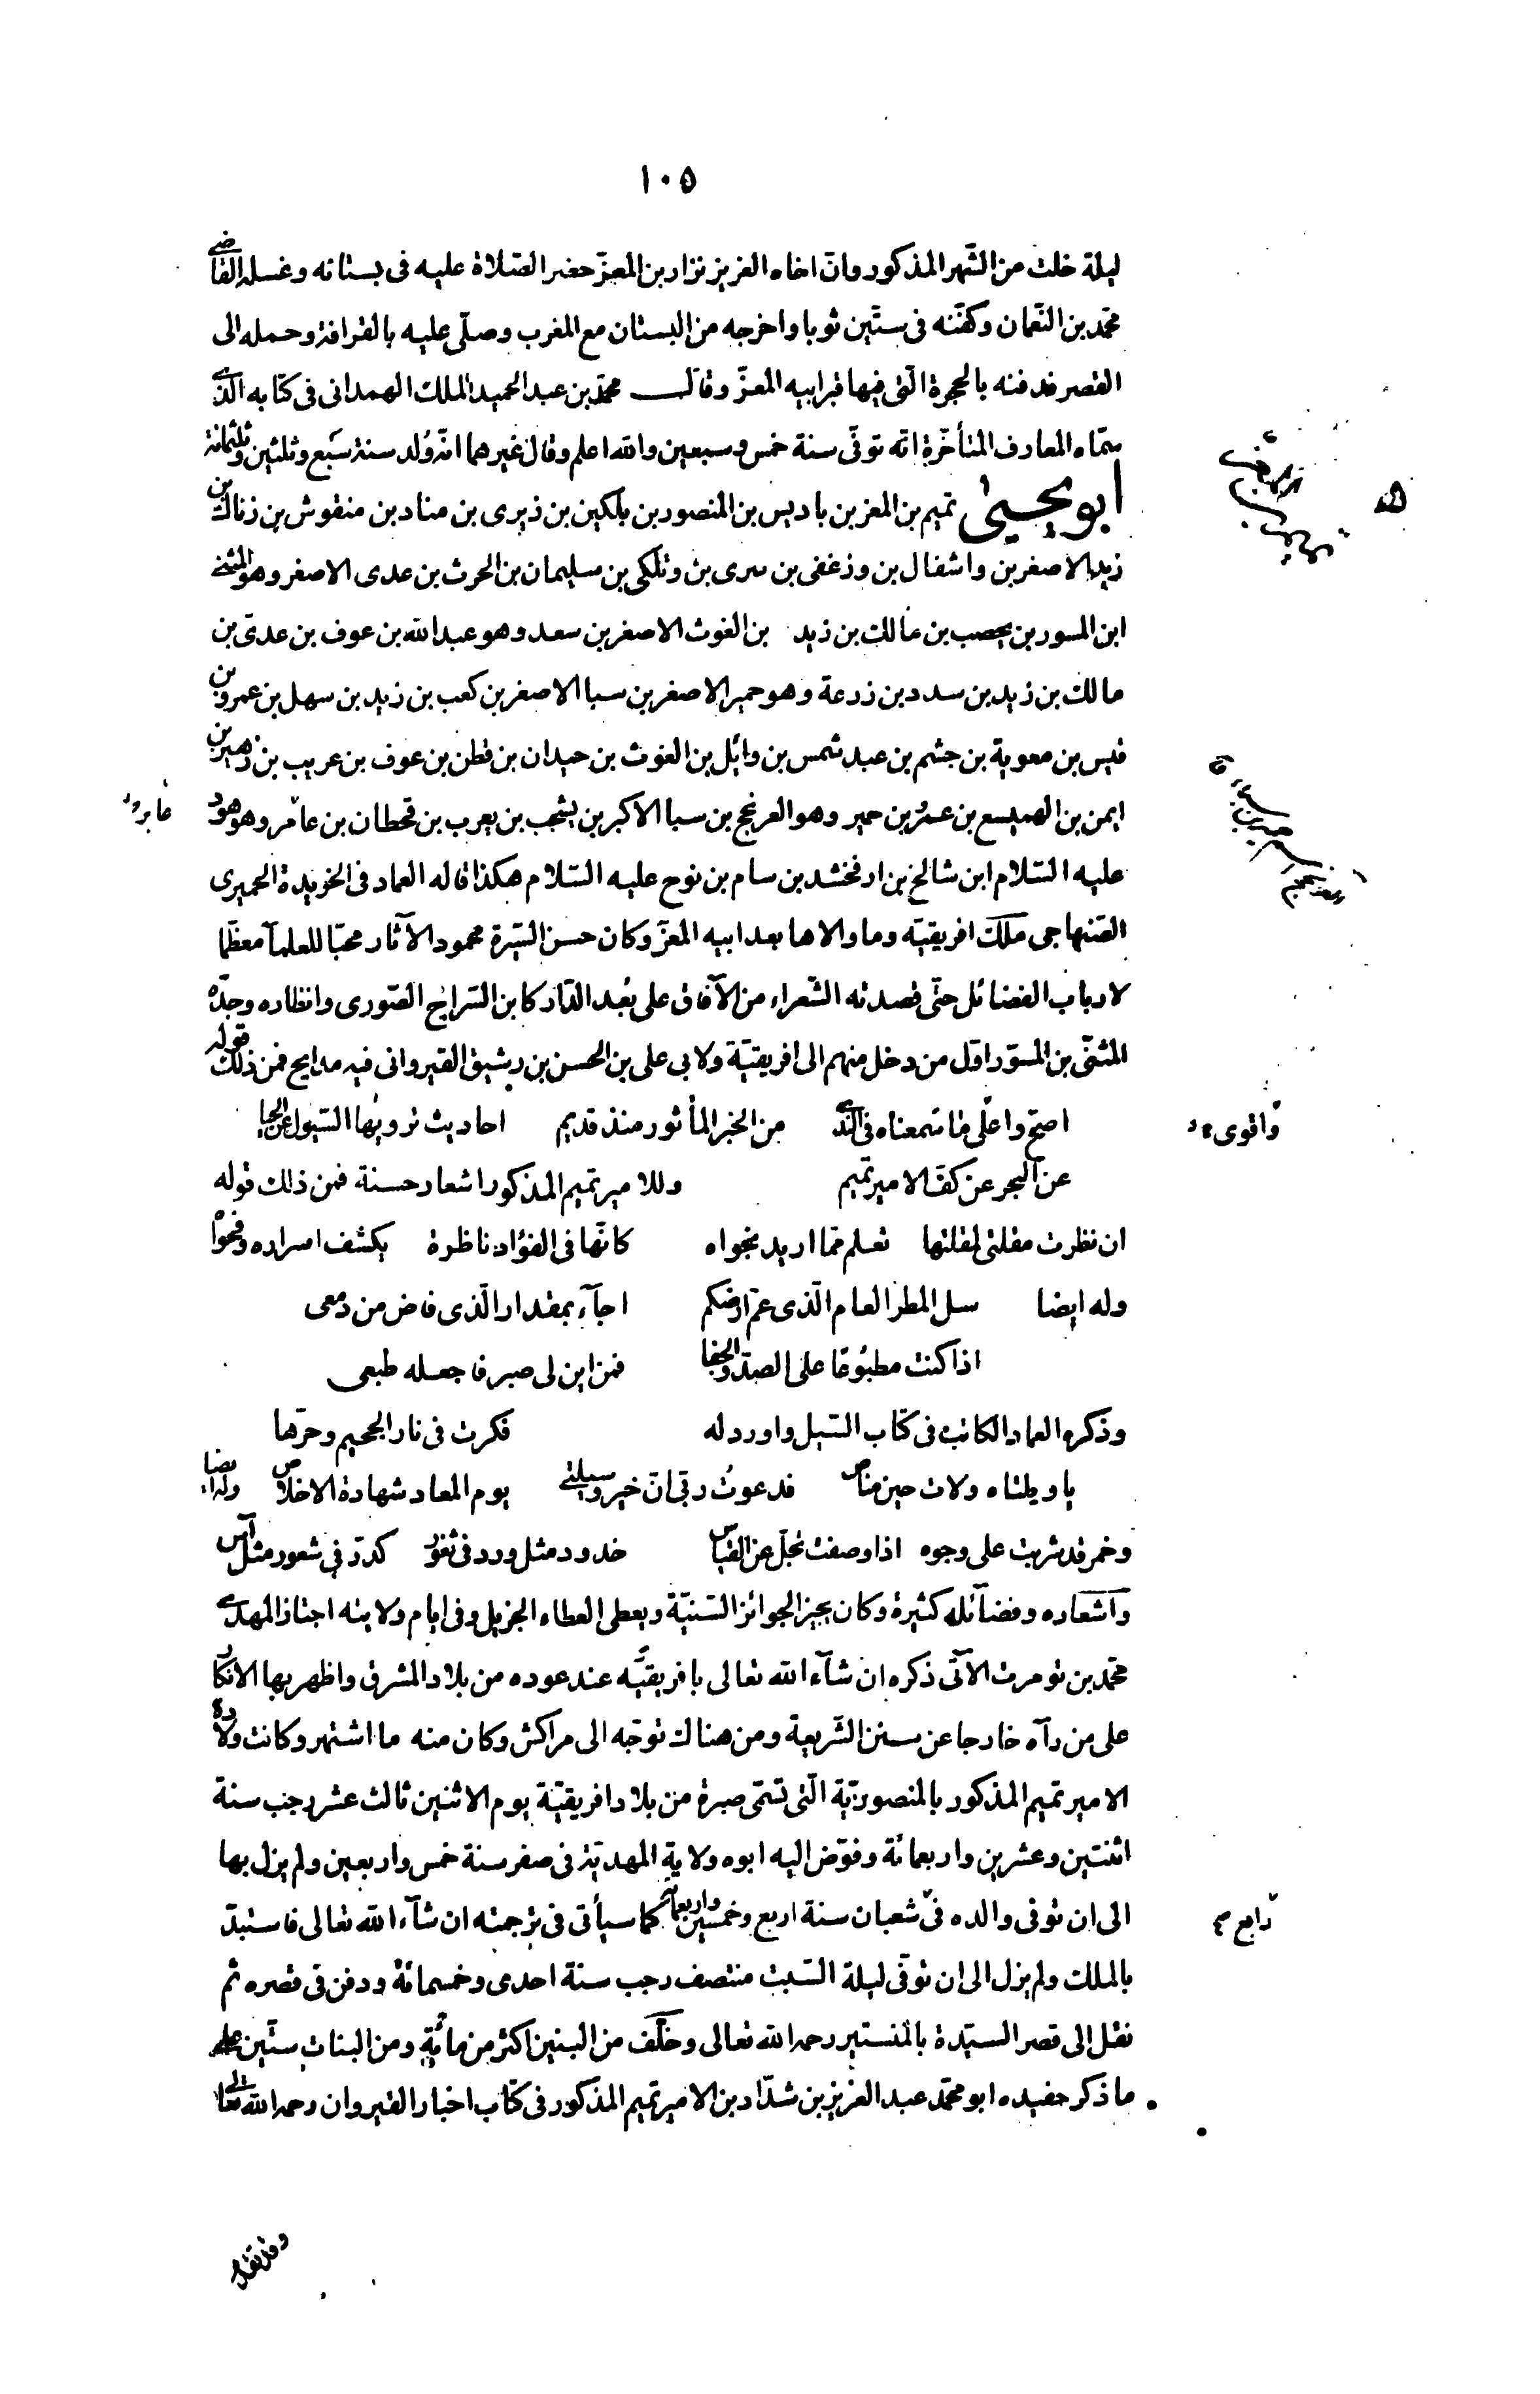 ١٠٥
ليلة خلت من الشهر المذكور وان اخاه العزيز نزار بن المعزّ حضر الصّلاة عليه فى بستانه وغسله القاضى
محمّد بن النّعمان وكفّنه فى ستّين ثوبا واخرجه من البستان مع المغرب وصلّى عليه بالقرافة وحمله الى
القصر فدفنه بالحجرة الّتى فيها قبر ابيه المعزّ وقال محمّد بن عبد الحميد الملك الهمدانى فى كتابه الذى
سمّاه المعارف المتأخّرة انّه توفّى سنة خمس وسبعين والله اعلم وقال غيرهما انّه وُلد سنة سَبع وثلثين وثلثمائة
أبو يحيىٰ تميم بن المعز بن باديس بن المنصور بن بلكين بن زيرى بن مناد بن منقوش بن زناك بن
زيد الاصغر بن واشفال بن وزغفى بن سرى بن وتلكى بن سليمان بن الحرث بن عدى الاصغر وهو المثنى
ابن المسور بن يحصب بن مالك بن زيد بن الغوث الاصغر بن سعد وهو عبد الله بن عوف بن عدىّ بن
مالك بن زيد بن سدد بن زرعة وهو حمير الاصغر بن سبا الاصغر بن كعب بن زيد بن سهل بن عمرو بن
قيس بن معوية بن جشم بن عبد شمس بن وائل بن الغوث بن حيدان بن قطن بن عوف بن عريب بن زهير بن
ايمن بن الهميسع بن عمرو بن حمير وهو العرنجج بن سبا الاكبر بن يشجب بن يعرب بن قحطان بن عامر وهو هود
عابر
عليه السّلام ابن شالخ بن ارفخشد بن سام بن نوح عليه السّلام هكذا قاله العماد فى الخريدة الحميرى
الصّنهاجى ملك افريقيّه وما والاها بعد ابيه المعزّ وكان حسن السّيرة محمود الآثار محبّا للعلمآ معظّما
لارباب الفضائل حتّى قصدته الشّعراء من الآفاق على بُعد الدّار كابن السّراج الصّورى وانظاره وجدّه
المثنّى بن المسوّر اوّل من دخل منهم الى افريقيّة ولابى على بن الحسن بن رشيق القيروانى فيه مدايح فمن ذلك قوله
اصحّ واعلى ما سَمعناه فى الندى من الخبر المأثور منذ قديم احاديث ترويها السّيول عن الحيا
واقوى
عن البحر عن كفّ الامير تميم وللامير تميم المذكور اشعار حسنة فمن ذلك قوله
ان نظرت مقلتى لمقلتها تعلم ممّا اريد نجواه كانّها فى الفؤاد ناظرة يكشف اسراره وفحواه
وله ايضا سل المطر العام الّذى عمّ ارضكم اجآء بمقدار الّذى فاض من دمعى
اذا كنت مطبُوعًا على الصدّ والجفا فمن اين لى صبر فاجعله طبعى
وذكره العماد الكاتب فى كتاب السّيل واورد له فكرت فى نار الجحيم وحرّها
ياويلتاه ولات حين مناص فدعوتُ ربّى انّ خير وسيلتى يوم المعاد شهادة الاخلاص وله ايضا
وخمر قد شربت على وجوه اذا وصفت تجلّ عن القياس خدود مثل ورد فى ثغور كدرّ فى شعور مثل آس
واشعاره وفضآئله كثيرة وكان يجيز الجوائز السّنيّة ويعطى العطاء الجزيل وفى ايام ولايته اجتاز المهدى
محمّد بن تومرت الآتى ذكره ان شآء الله تعالى بافريقيّه عند عوده من بلاد المشرق واظهر بها الانكار
على من رآه خارجا عن سنن الشّريعة ومن هناك توجّه الى مراكش وكان منه ما اشتهر وكانت ولادة
الامير تميم المذكور بالمنصوريّة الّتى تسمّى صبرة من بلاد افريقيّة يوم الاثنين ثالث عشر رجب سنة
اثنتين وعشرين واربعمائة وفوّض اليه ابوه ولاية المهديّة فى صفر سنة خمس واربعين ولم يزل بها
الى ان توفى والده فى شعبان سنة اربع وخمسين واربعمائة كما سيأتى فى ترجمته ان شآء الله تعالى فاستبدّ
رابع
بالملك ولم يزل الى ان توفّى ليلة السّبت منتصف رجب سنة احدى وخمسمائة ودفن فى قصره ثم
نقل الى قصر السيّدة بالمنستير رحمه الله تعالى وخلّف من البنين اكثر من مائة ومن البنات ستّين على
ما ذكر حفيده ابو محمّد عبد العزيز بن شدّاد بن الامير تميم المذكور فى كتاب اخبار القيروان رحمه الله تعالى